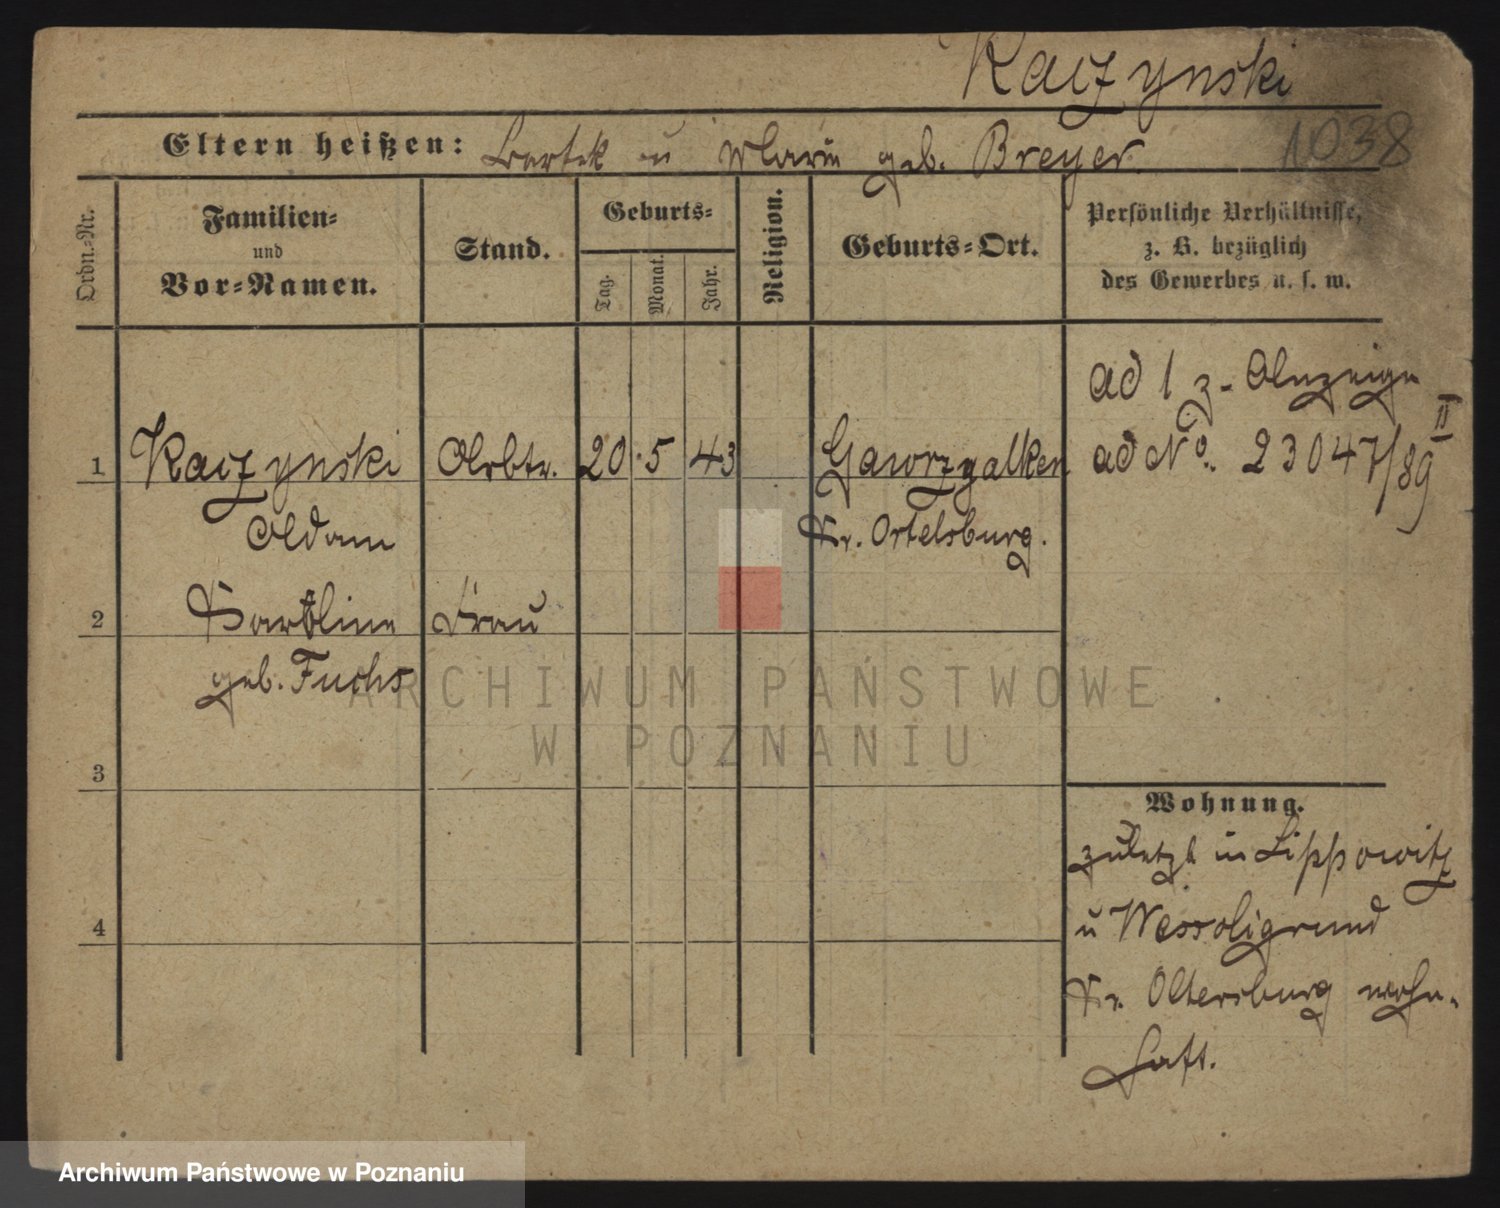 Kaczynski
1038
Eltern heißen: Bartek u Marie geb. Breyer.
Ordn.-Nr.
Familien-
und
Vor-Namen.
Stand.
Geburts-
Tag.
Monat.
Jahr.
Religion.
Geburts-Ort.
Persönliche Verhältnisse,
z. B. bezüglich
des Gewerbes u. s. w.
ad 1 z. Anzeige
1 Kaczynski Arbtr. 20. 5 43 Gaworzyalken ad No. 23047/89 II
Adam Kr. Ortelsburg.
2 Karoline Frau
geb. Fuchs
3
4
Wohnung.
zuletzt in Lippowitz
u Wessoligrund
Kr. Oltersburg wohn-
haft.
ARCHIWUM PAŃSTWOWE
W POZNANIU
Archiwum Państwowe w Poznaniu